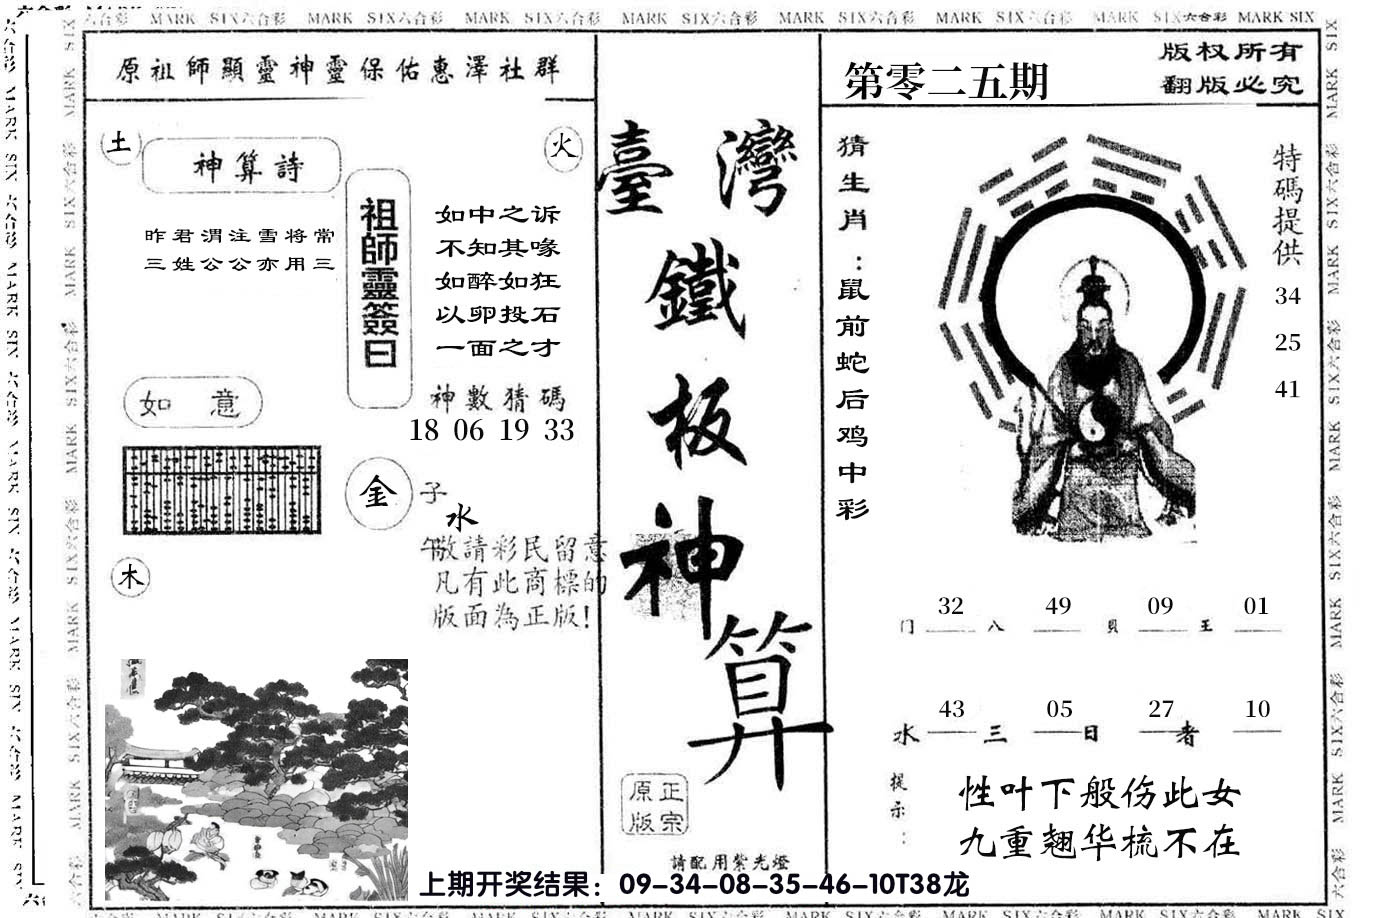 MARK SIX六合彩 MARK SIX六合彩 MARK SIX六合彩 MARK SIX六合彩 MARK SIX六合彩 MARK SIX六合彩 MARK SIX六合彩 MARK SIX
原祖師顯靈神靈保佑惠澤社群
土
神算詩
火
昨君渭注雪将常
三姓公公亦用三
祖師靈簽曰
如中之诉
不知其喙
如醉如狂
以卵投石
一面之才
神數猜碼
18 06 19 33
如 意
金
子
水
午
木
敬請彩民留意
凡有此商標的
版面為正版!
臺灣
鐵
板
神
算
正宗
原版
請配用紫光燈
第零二五期
版权所有
翻版必究
猜生肖:鼠前蛇后鸡中彩
特碼提供
34
25
41
门 32 八 49 貝 09 王 01
水 43 三 05 日 27 者 10
提示:
性叶下般伤此女
九重翘华梳不在
上期开奖结果:09-34-08-35-46-10T38龙